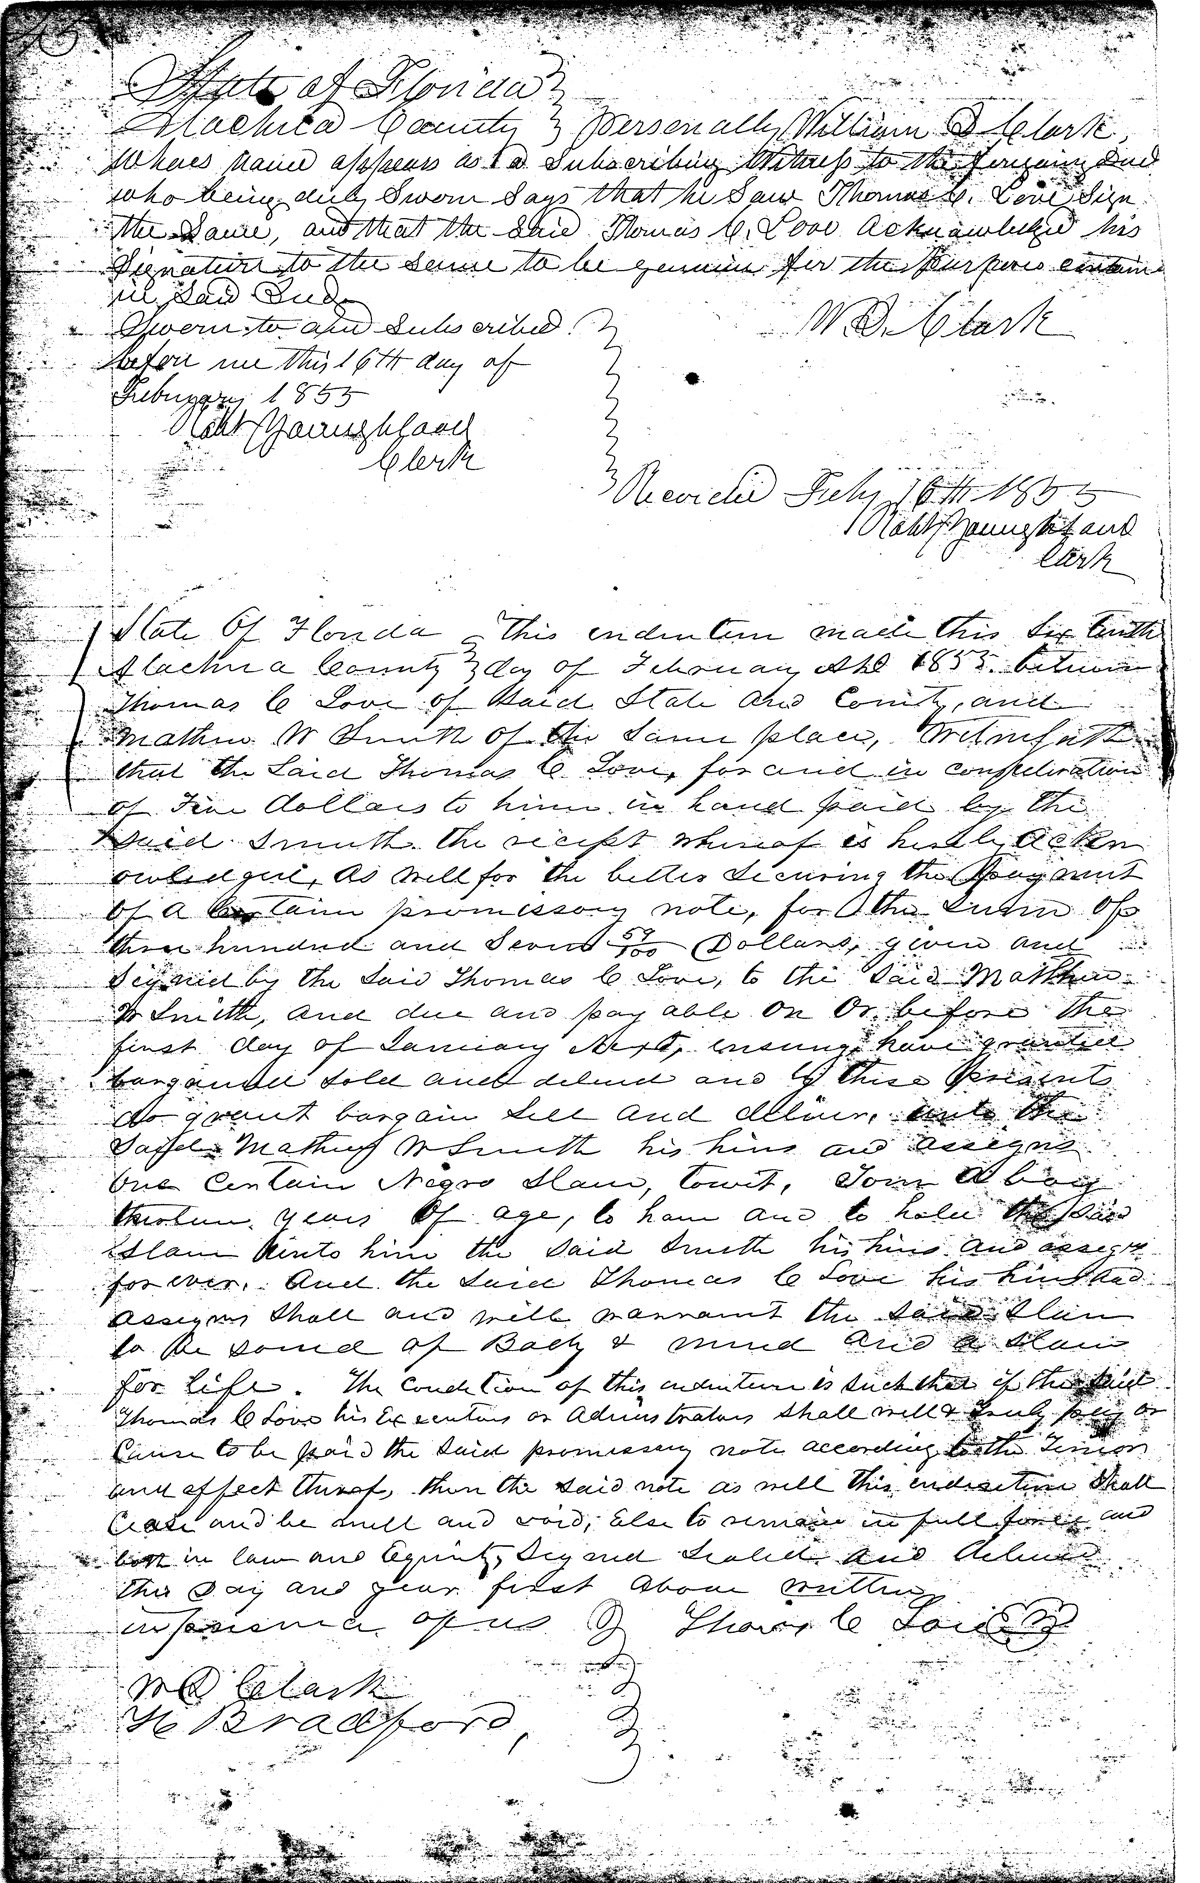 State of Florida
Alachua County } personally William D Clark,
whoes name appears as a Subscribing Witness to the forgoing Deed
who being duly Sworn Says that he Saw Thomas C. Love Sign
the Same, and that the Said Thomas C. Love acknowledged his
Signature to the same to be genuine for the Purposes contain
in Said Deed
Sworn to and Subscribed
before me this 16th day of
February 1855
W. D. Clark
Robt Youngblood
Clerk
Recorded July 16th 1855
Robt Youngblood
Clerk
State Of Florida } This indenture made this Six tenth
Alachua County } day of February AD 1855 between
Thomas C Love of Said State and County, and
Mathew W Smith of the Same place, Witnesseth
that the Said Thomas C Love, for and in consideration
of Five dollars to him in hand paid by the
Said Smith the reciept whereof is hereby ackn
owledged, as well for the better Securing the Payment
of a Certain promissory note, for the Sum of
three hundred and Seven 59/100 Dollars, given and
Signed by the Said Thomas C Love, to the Said Matthew
W Smith, and due and payable on Or before the
first day of January Next, ensuing, have granted
bargained sold and deliverd and by these Presents
do grant bargain Sell and deliver, unto the
Said Mathew W Smith his heirs and assigns
One Certain Negro Slave, towit, Tom a boy
years Of age, to have and to hold the Said
Slave unto him the Said Smith his heirs and assigns
for ever. And the Said Thomas C Love his heirs and
assigns Shall and will warrant the Said Slave
to be sound of Body & mind and a Slave
for life. The Condition of this indenture is Such that if the Said
Thomas C Love his Executors or Administrators Shall well & truly pay or
Cause to be paid the Said promissory note according to the Tenor
and effect thereof, then the Said note as well this indenture Shall
Cease and be null and void, Else to remain in full force and
both in law and Equity, Signed Sealed and delivered
the day and year first above written
in presence of us } Thomas C Love
W D Clark
H Bradford,